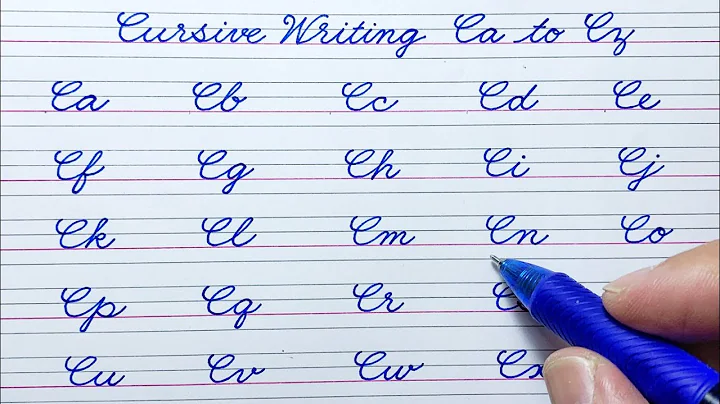 Cursive Writing Ca to Cz
Ca Cb Cc Cd Ce
Cf Cg Ch Ci Cj
Ck Cl Cm Cn Co
Cp Cq Cr
Cu Cv Cw Cx